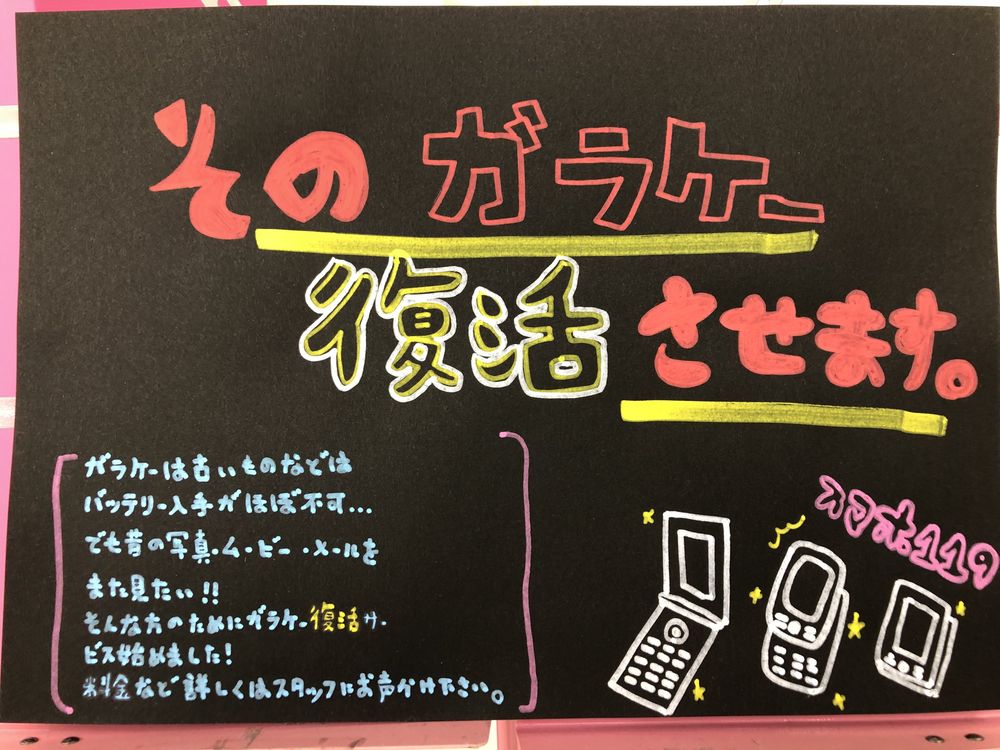 そのガラケー
復活させます。
ガラケーは古いものなどは
バッテリー入手がほぼ不可...
でも昔の写真・ムービー・メールを
また見たい!!
そんな方のためにガラケー復活サー
ビス始めました!
料金など詳しくはスタッフにお声かけ下さい。
スマホ119